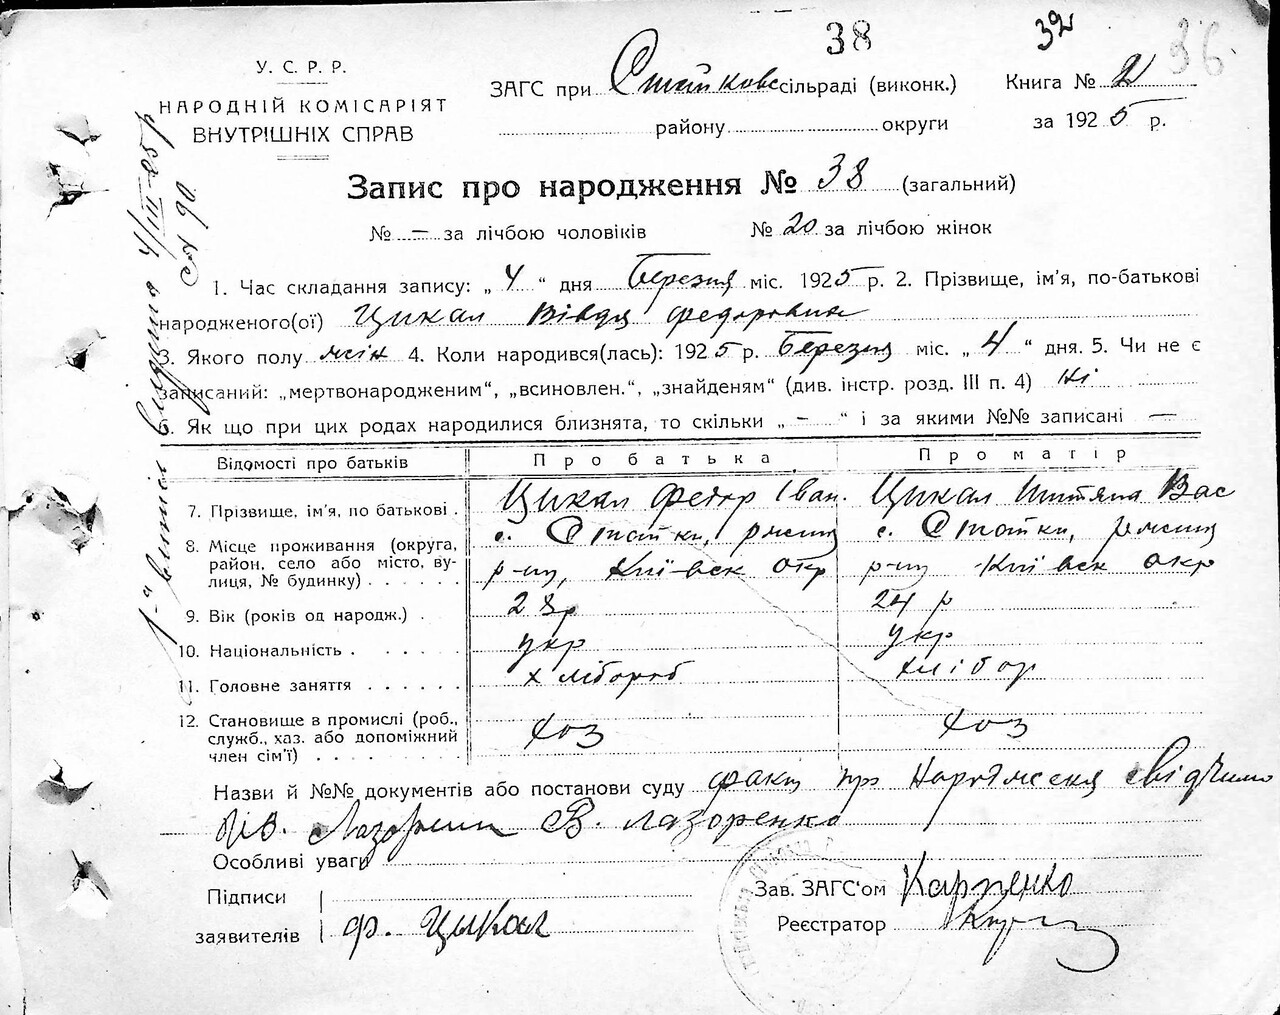 38 32 36
У. С. Р. Р.
НАРОДНІЙ КОМІСАРІЯТ
ВНУТРІШНІХ СПРАВ
ЗАГС при Стайковс сільраді (виконк.) Книга № 2
району округи за 1925 р.
Запис про народження № 38 (загальний)
№ — за лічбою чоловіків № 20 за лічбою жінок
1. Час складання запису: „ 4 “ дня березня міс. 1925 р. 2. Прізвище, ім'я, по-батькові
народженого(ої) Цикал Вівдя Федоровна
3. Якого полу жін 4. Коли народився(лась): 1925 р. березня міс. „ 4 “ дня. 5. Чи не є
записаний: „мертвонародженим“, „всиновлен.“, „знайденям“ (див. інстр. розд. III п. 4) ні
6. Як що при цих родах народилися близнята, то скільки „ — “ і за якими №№ записані —
Відомості про батьків Про батька Про матір
7. Прізвище, ім'я, по батькові . Цикал Федор Іван. Цикал Титяна Вас
8. Місце проживання (округа, с. Стайки, ржищ с. Стайки, ржищ
район, село або місто, ву- р-ну, Київск окр р-ну Київск окр
лиця, № будинку) . . . . . .
9. Вік (років од народж.) . 28р 24 р
10. Національність . . . . . укр укр
11. Головне заняття . . . . . . хлібороб хлібор
12. Становище в промислі (роб., хоз хоз
служб., хаз. або допоміжний
член сім'ї) . . . . . . . .
Назви й №№ документів або постанови суду факт про народження свідчимо
В. Лазоренко
Особливі уваги
Підписи Зав. ЗАГС'ом Карпенко
заявителів Ф. Цикал Реєстратор
1-й витяг видано 4/III-25 р
№ 90